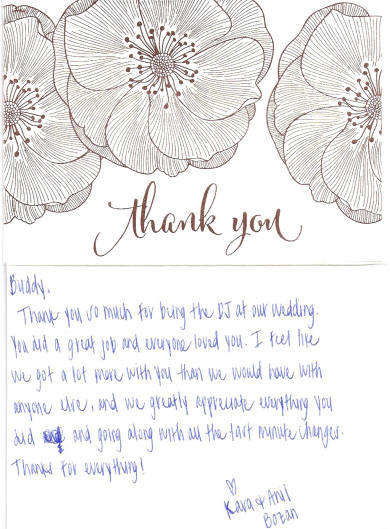 thank you
Buddy,
Thank you so much for being the DJ at our wedding.
You did a great job and everyone loved you. I feel like
we got a lot more with you than we would have with
anyone else, and we greatly appreciate everything you
did and going along with all the last minute changes.
Thanks for everything!
Kara & Anil
Bozan